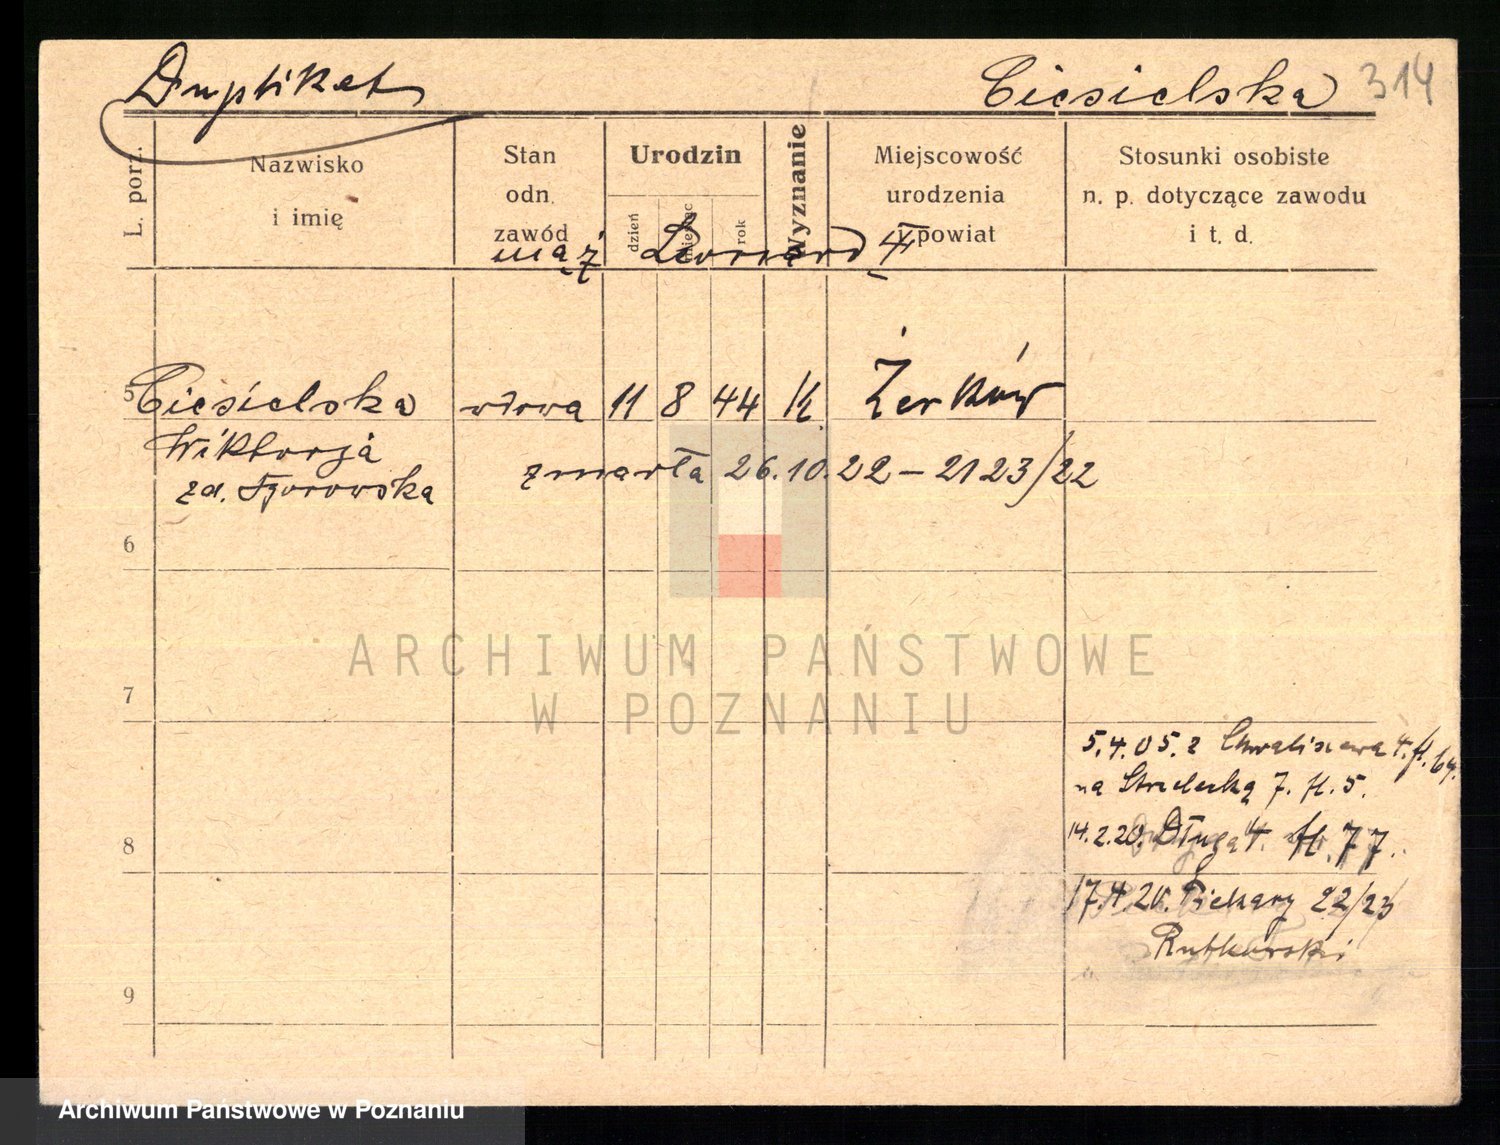 Duplikat
Ciesielska 314
L. porz.
Nazwisko
i imię
Stan
odn.
zawód
Urodzin
dzień
miesiąc
rok
Wyznanie
Miejscowość
urodzenia
i powiat
Stosunki osobiste
n. p. dotyczące zawodu
i t. d.
mąż Leonard
5 Ciesielska wdowa 11 8 44 k. Żerków
Wiktorja
zmarła 26.10.22 – 2123/22
zd.
6
ARCHIWUM PAŃSTWOWE
W POZNANIU
7
5.4.05. z Chwaliszewa
na Strzelecką 7. fl. 5.
8
14.2.20. Długa 4. fl. 77.
Piekary 22/23
Rutkowski
9
Archiwum Państwowe w Poznaniu